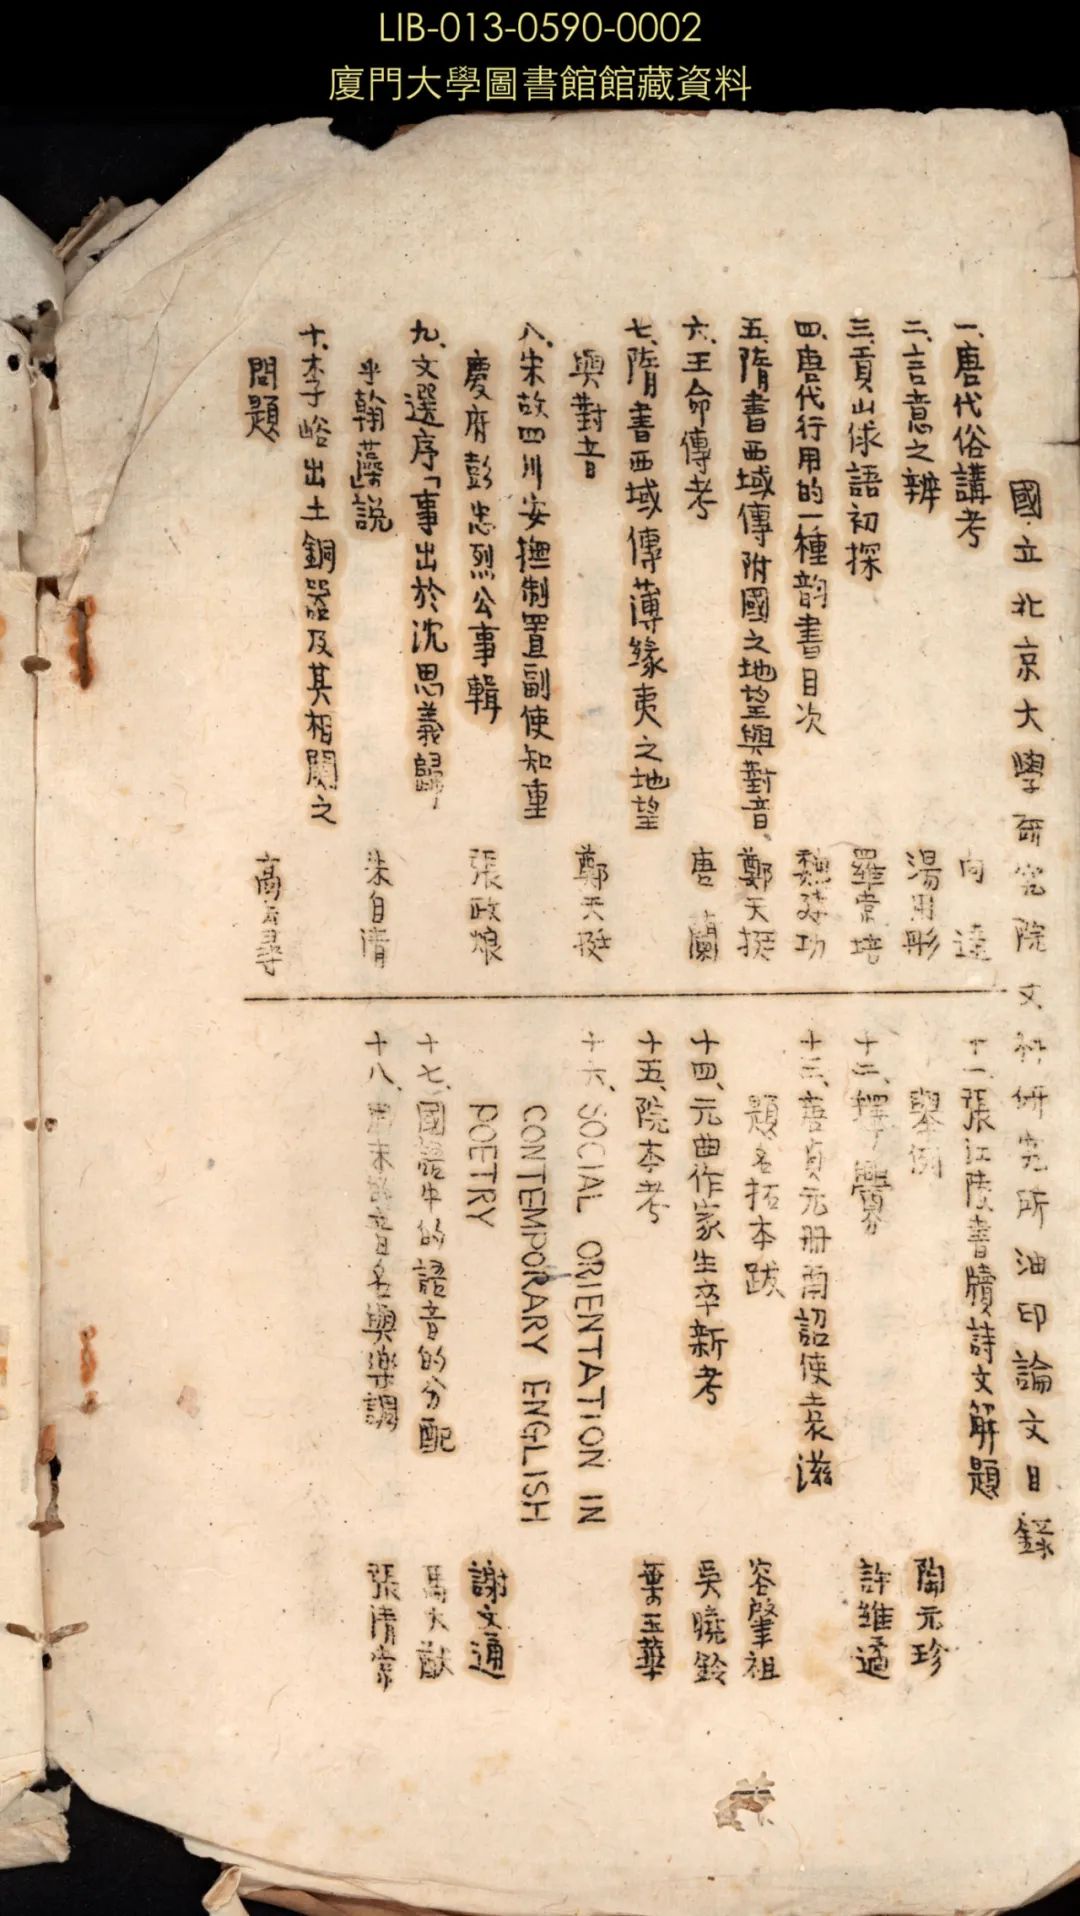 LIB-013-0590-0002
廈門大學圖書館館藏資料
國立北京大學研究院文科研究所油印論文目錄
一、唐代俗講考 向達
二、言意之辨 湯用彤
三、貢山俅語初探 羅常培
四、唐代行用的一種韵書目次 魏建功
五、隋書西域傳附國之地望與對音、鄭天挺
六、王命傳考 唐蘭
七、隋書西域傳薄緣夷之地望
與對音 鄭天挺
八、宋故四川安撫制置副使知重
慶府彭忠烈公事輯 張政烺
九、文選序「事出於沈思義歸
乎翰藻說 朱自清
十、李峪出土銅器及其相關之
問題 高去尋
十一、張江陵書牘詩文解題
舉例 陶元珍
十二、釋釁 許維遹
十三、唐貞元册南詔使袁滋
題名拓本跋 容肇祖
十四、元曲作家生卒新考 吳曉鈴
十五、院本考 葉玉華
十六、SOCIAL ORIENTATION IN
CONTEMPORARY ENGLISH
POETRY 謝文通
十七、國語中的語音的分配 馬大猷
十八、周末 音名與樂調 張清常